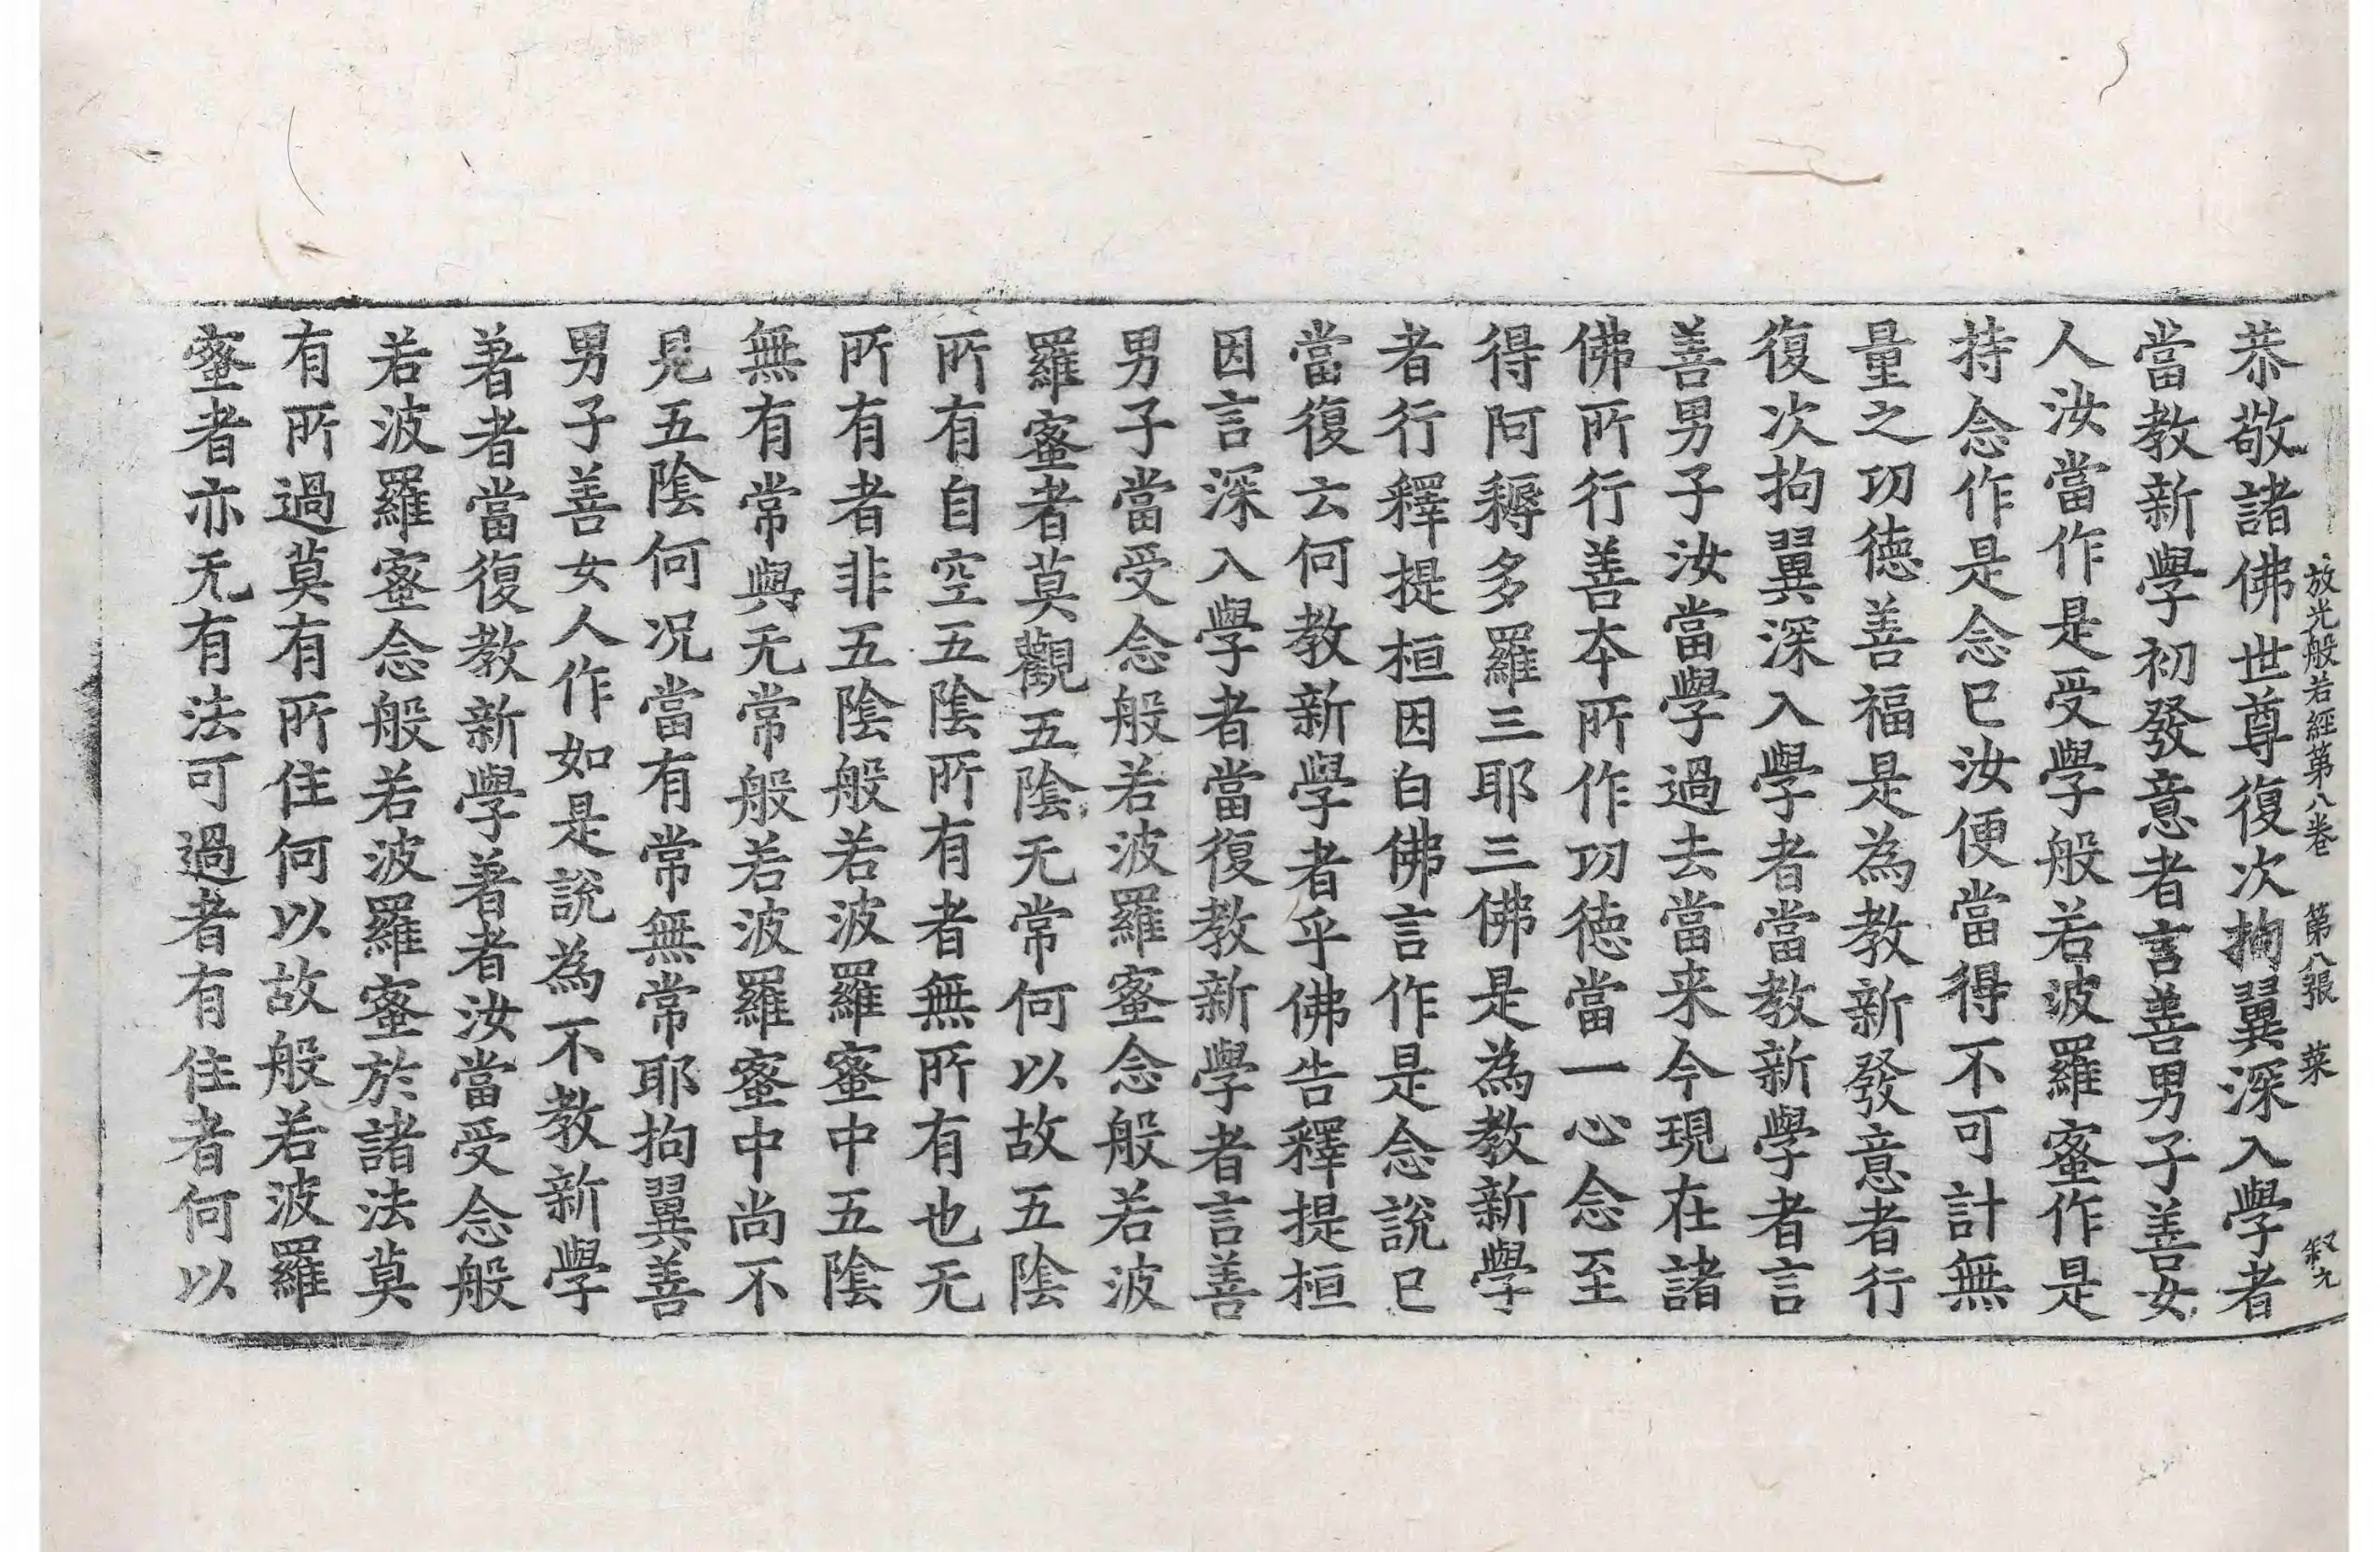 放光般若經第八卷 第八張 菜
恭敬諸佛世尊復次拘翼深入學者
當教新學初發意者言善男子善女
人汝當作是受學般若波羅蜜作是
持念作是念已汝便當得不可計無
量之功德善福是為教新發意者行
復次拘翼深入學者當教新學者言
善男子汝當學過去當来今現在諸
佛所行善本所作功德當一心念至
得阿耨多羅三耶三佛是為教新學
者行釋提桓因白佛言作是念說已
當復云何教新學者乎佛告釋提桓
因言深入學者當復教新學者言善
男子當受念般若波羅蜜念般若波
羅蜜者莫觀五陰无常何以故五陰
所有自空五陰所有者無所有也无
所有者非五陰般若波羅蜜中五陰
無有常與无常般若波羅蜜中尚不
見五陰何况當有常無常耶拘翼善
男子善女人作如是說為不教新學
著者當復教新學著者汝當受念般
若波羅蜜念般若波羅蜜於諸法莫
有所過莫有所住何以故般若波羅
蜜者亦无有法可過者有住者何以